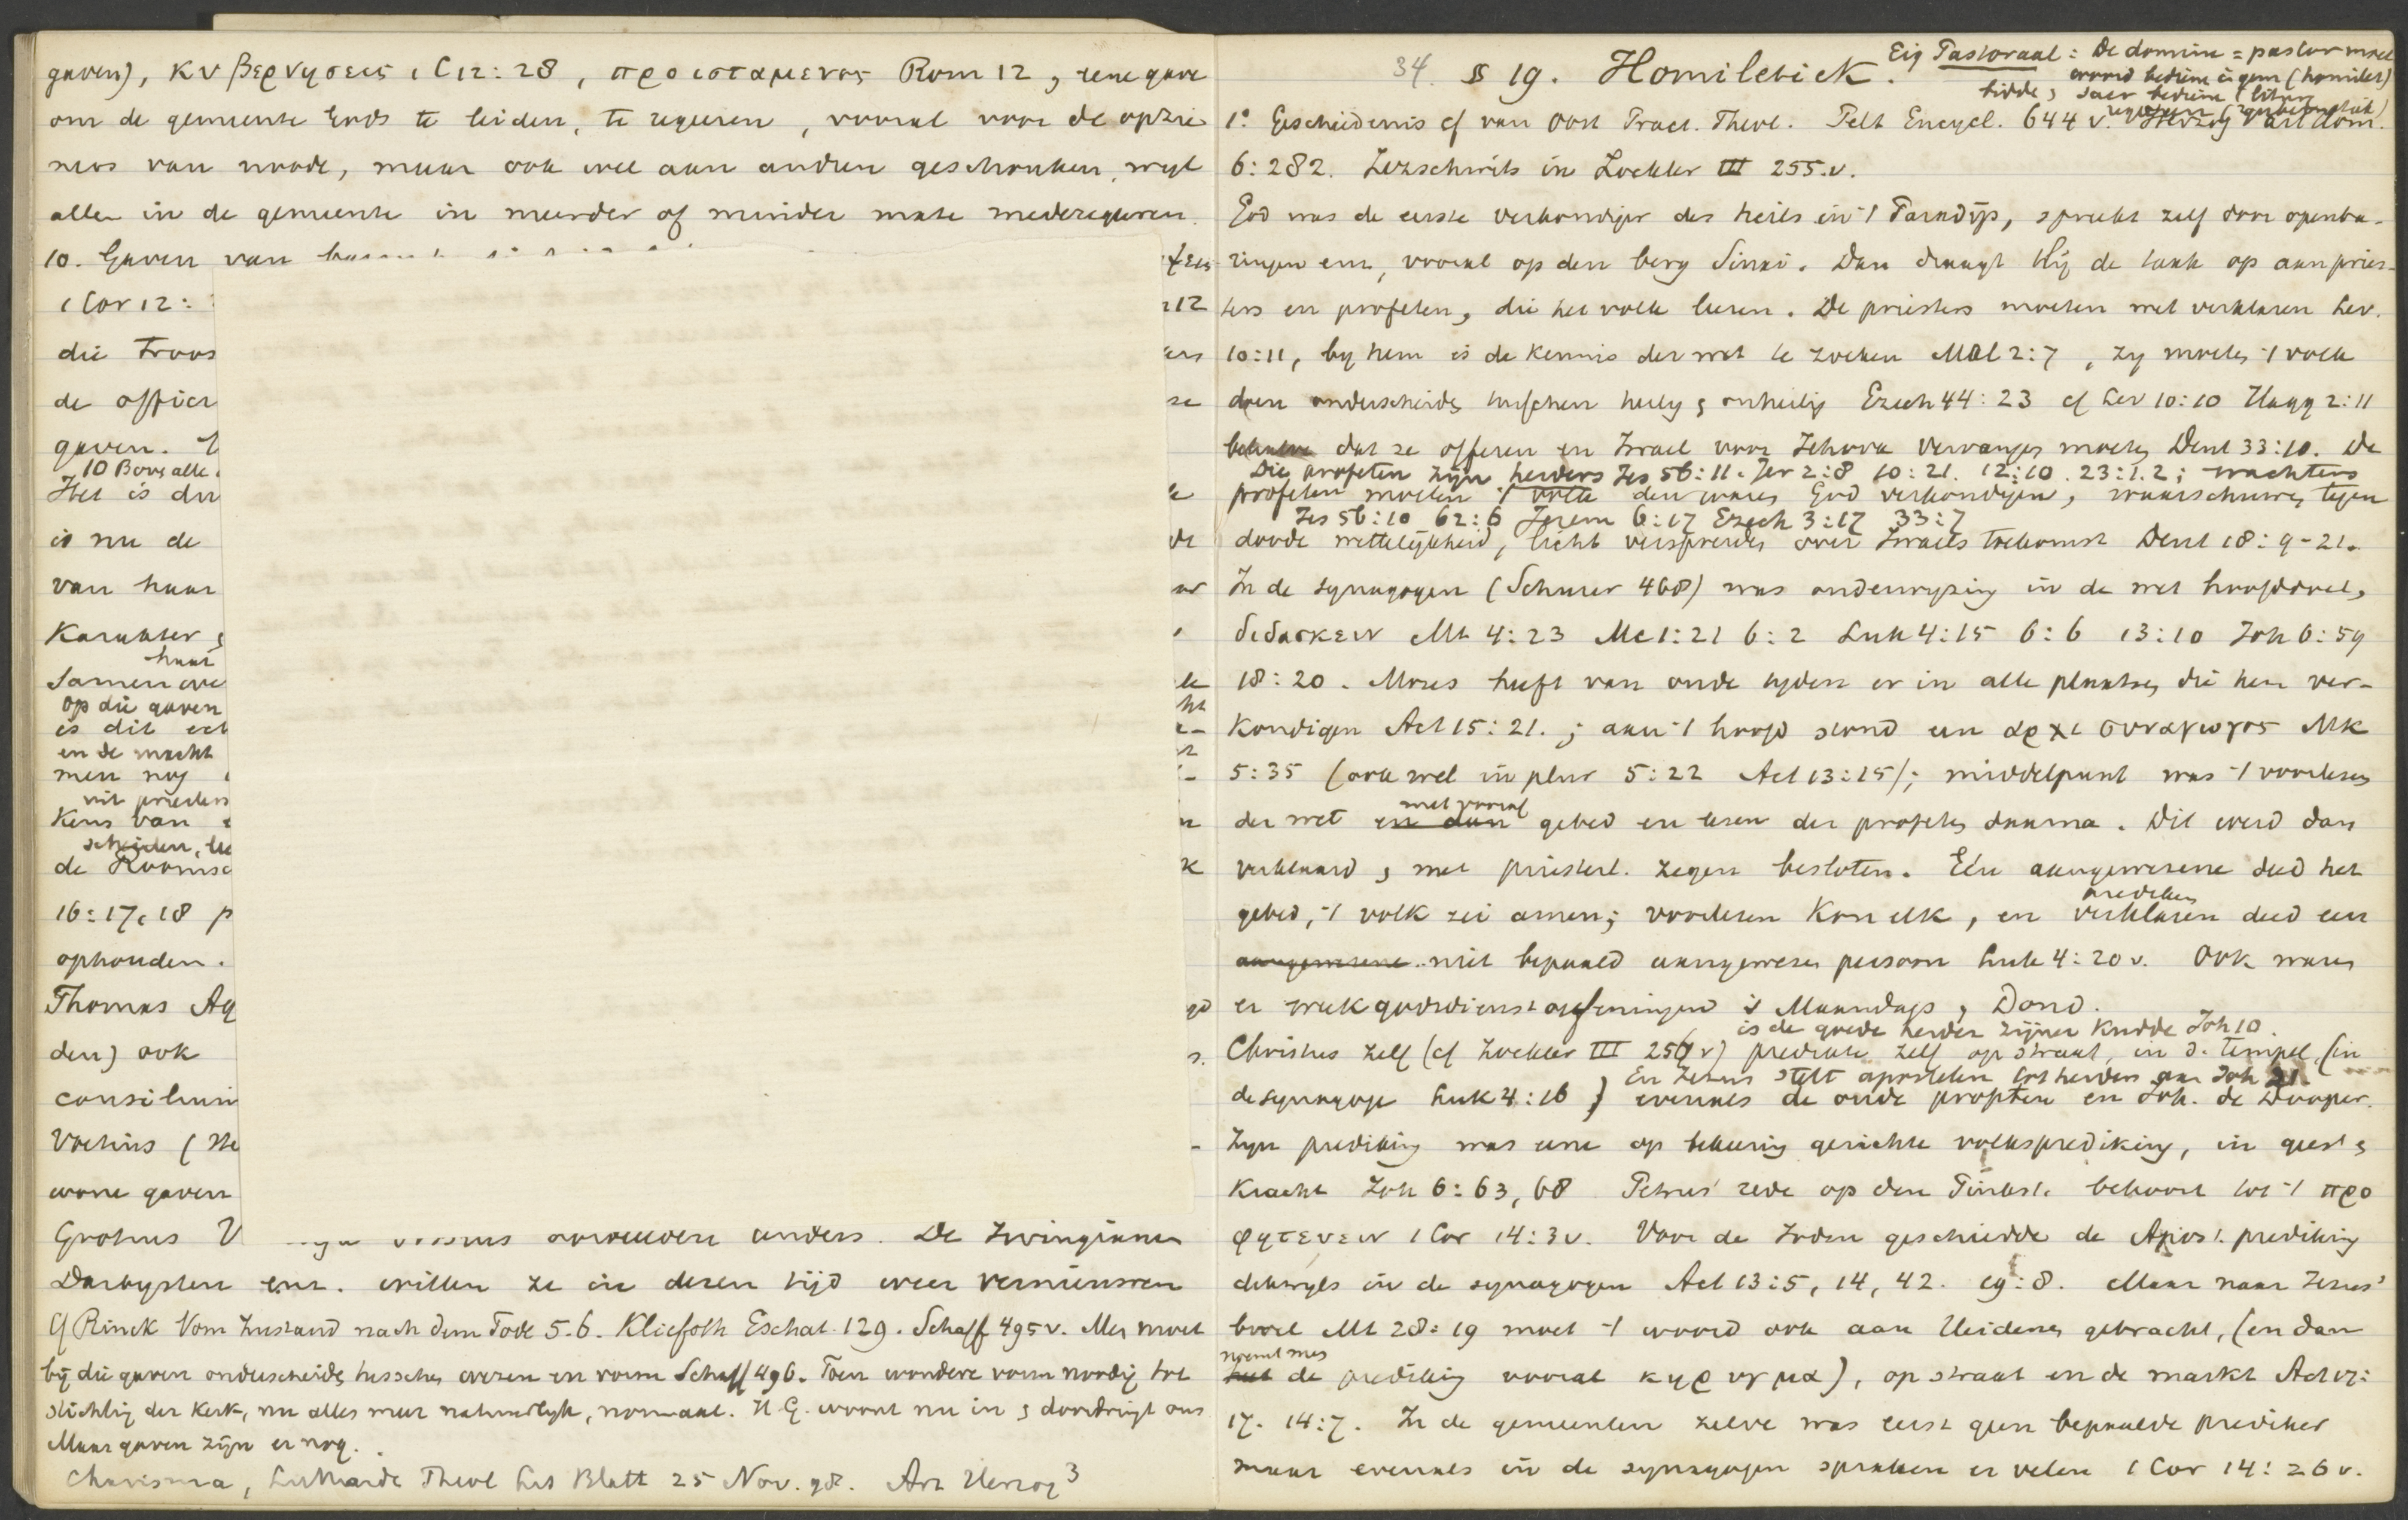 gaven), κυβερνησεις 1 C 12:28, προισταμενος Rom 12, eene gave
om de gemeente Gods te leiden, te regeeren, vooral voor de opzie-
ners van noode, maar ook wel aan andren geschonken, wijl
allen in de gemeente in meerder of minder mate mederegeeren.
10. Gaven van
1 Cor 12:
die troos
de offici
gaven.
10 Bovs alle
Het is du
is nu de
van haar
Karakter
haar
Samen ove
op die gaven
is dit ech
en de macht
men nog
uit priesters
Kens van
scheiden,
de Roomsc
16:17, 18 p
ophouden.
Thomas Aq
den) ook
consilium
Voetius (
wone gaven
Grotius V anders. De Irvingianen
Darbysten enz. willen ze in dezen tijd weer vernieuwen
cf Rinck Vom Zustand nach dem Tode 5.6. Kliefoth Eschat. 129. Schaff 495 v. Men moet
bij die gaven onderscheids tusschen wezen en vorm Schaff 496. Toen wondere vorm noodig tot
stichting der Kerk, nu alles meer natuurlijk, normaal. H G. woont nu in & doordringt ons
Maar gaven zijn er nog.
Charisma, Luthardt Theol Lit Blatt 25 Nov. 98. Art Herzog 3
34. § 19. Homiletiek. Eig Pastoraal: De domine = pastor moet
woord bedien in gem (homilet)
bidde, sacr bediene (liturg
1° Geschiedenis cf van Oost Pract. Theol. Pelt Encycl. 644 v. Herzog
6:282. Zezschwitz in Zockler III 255.v.
God was de eerste verkondiger des heils in 't Paradijs, spreekt zelf door openba-
ringen enz, vooral op den berg Sinai. Dan draagt Hij de taak op aan pries-
ters en profeten, die het volk leeren. De priesters moeten wet verklaren Lev.
10:11, by hem is de kennis der wet te zoeken Mal 2:7, zy moeten 't volk
doen onderscheids tusschen heilig & onheilig Ezech 44:23 cf Lev 10:10 Hagg 2:11
behalve dat ze offeren en Israel voor Jehova vervangen moeten Deut 33:10. De
Die profeten zijn herders Jes 56:11. Jer 2:8 10:21. 12:10. 23:1.2; wachters
profeten moeten 't volk den waren God verkondigen, waarschuwen tegen
Jes 56:10 62:6 Jerem 6:17 Ezech 3:17 33:7
doode wettelijkheid, licht verspreiden over Israels toekomst Deut 18:9-21.
In de synagogen (Schurer 468) was onderwyzing in de wet hoofddoel,
διδασκειν Mt 4:23 Mc 1:21 6:2 Luk 4:15 6:6 13:10 Joh 6:59
18:20. Mozes heeft van oude tyden er in alle plaatsen die hem ver-
kondigen Act 15:21.; aan 't hoofd stond een αρχισυναγωγος Mk
5:35 (ook wel in plur 5:22 Act 13:15); middelpunt was 't voorlezen
met vooraf
der wet en dan gebed en lezen der profeten daarna. Dit werd dan
verklaard & met priesterl. zegen besloten. Een aangewezene deed het
prediken
gebed, 't volk zei amen; voorlezen kon elk, en verklaren deed een
aangewezene niet bepaald aangewezen persoon Luk 4:20 v. Ook waren
er week godsdienstoefeningen 's Maandags & Dond.
is de goede herder zijner kudde Joh 10.
Christus zelf (cf Zockler III 256 v) predikte zelf op straat, in d. tempel, (in
En Jezus stelt apostelen tot herders aan Joh 21.
de synagoge Luk 4:16) evenals de oude profeten en Joh. de Dooper.
Zyn prediking was eene op bekeering gerichte volksprediking, in geest &
kracht Joh 6:63, 68 Petrus' rede op den Pinkst. behoort tot 't προ
φητευειν 1 Cor 14:3 v. Voor de Joden geschiedde de Apost. prediking
dikwyls in de synagogen Act 13:5, 14, 42. 19:8. Maar naar Jezus'
bevel Mt 28:19 moet 't woord ook aan Heidenen gebracht, (en dan
noemt men
heet de prediking vooral κηρυγμα), op straat en de markt Act 17:
17. 14:7. In de gemeenten zelve was eerst geen bepaalde prediker
maar evenals in de synagogen spraken er velen 1 Cor 14:26 v.